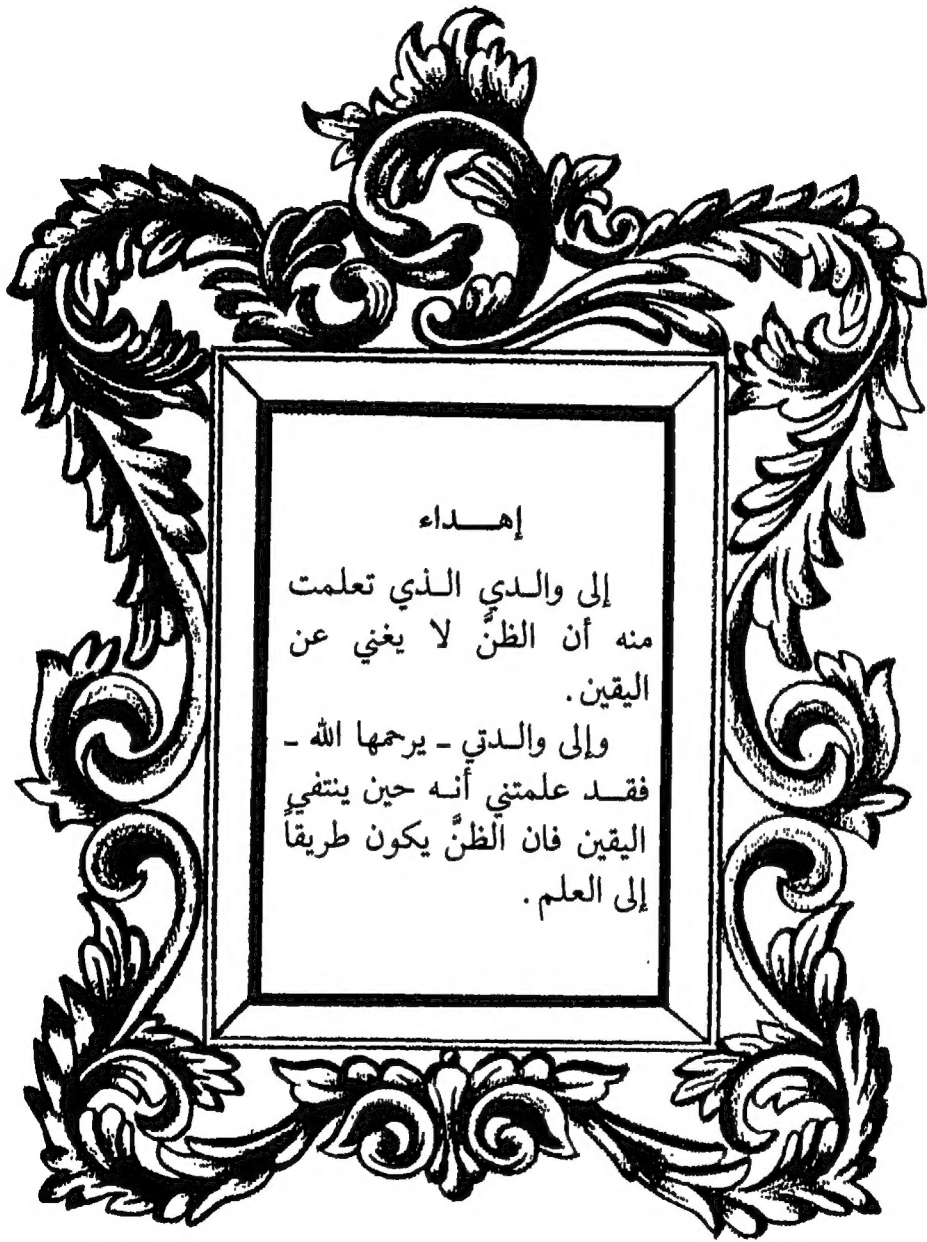 إهــداء
إلى والـدي الـذي تعلمت
منه أن الظنَّ لا يغني عن
اليقين.
وإلى والـدتي ـ يرحمها الله ـ
فقـد علمتني أنـه حين ينتفي
اليقين فان الظنَّ يكون طريقاً
إلى العلم.